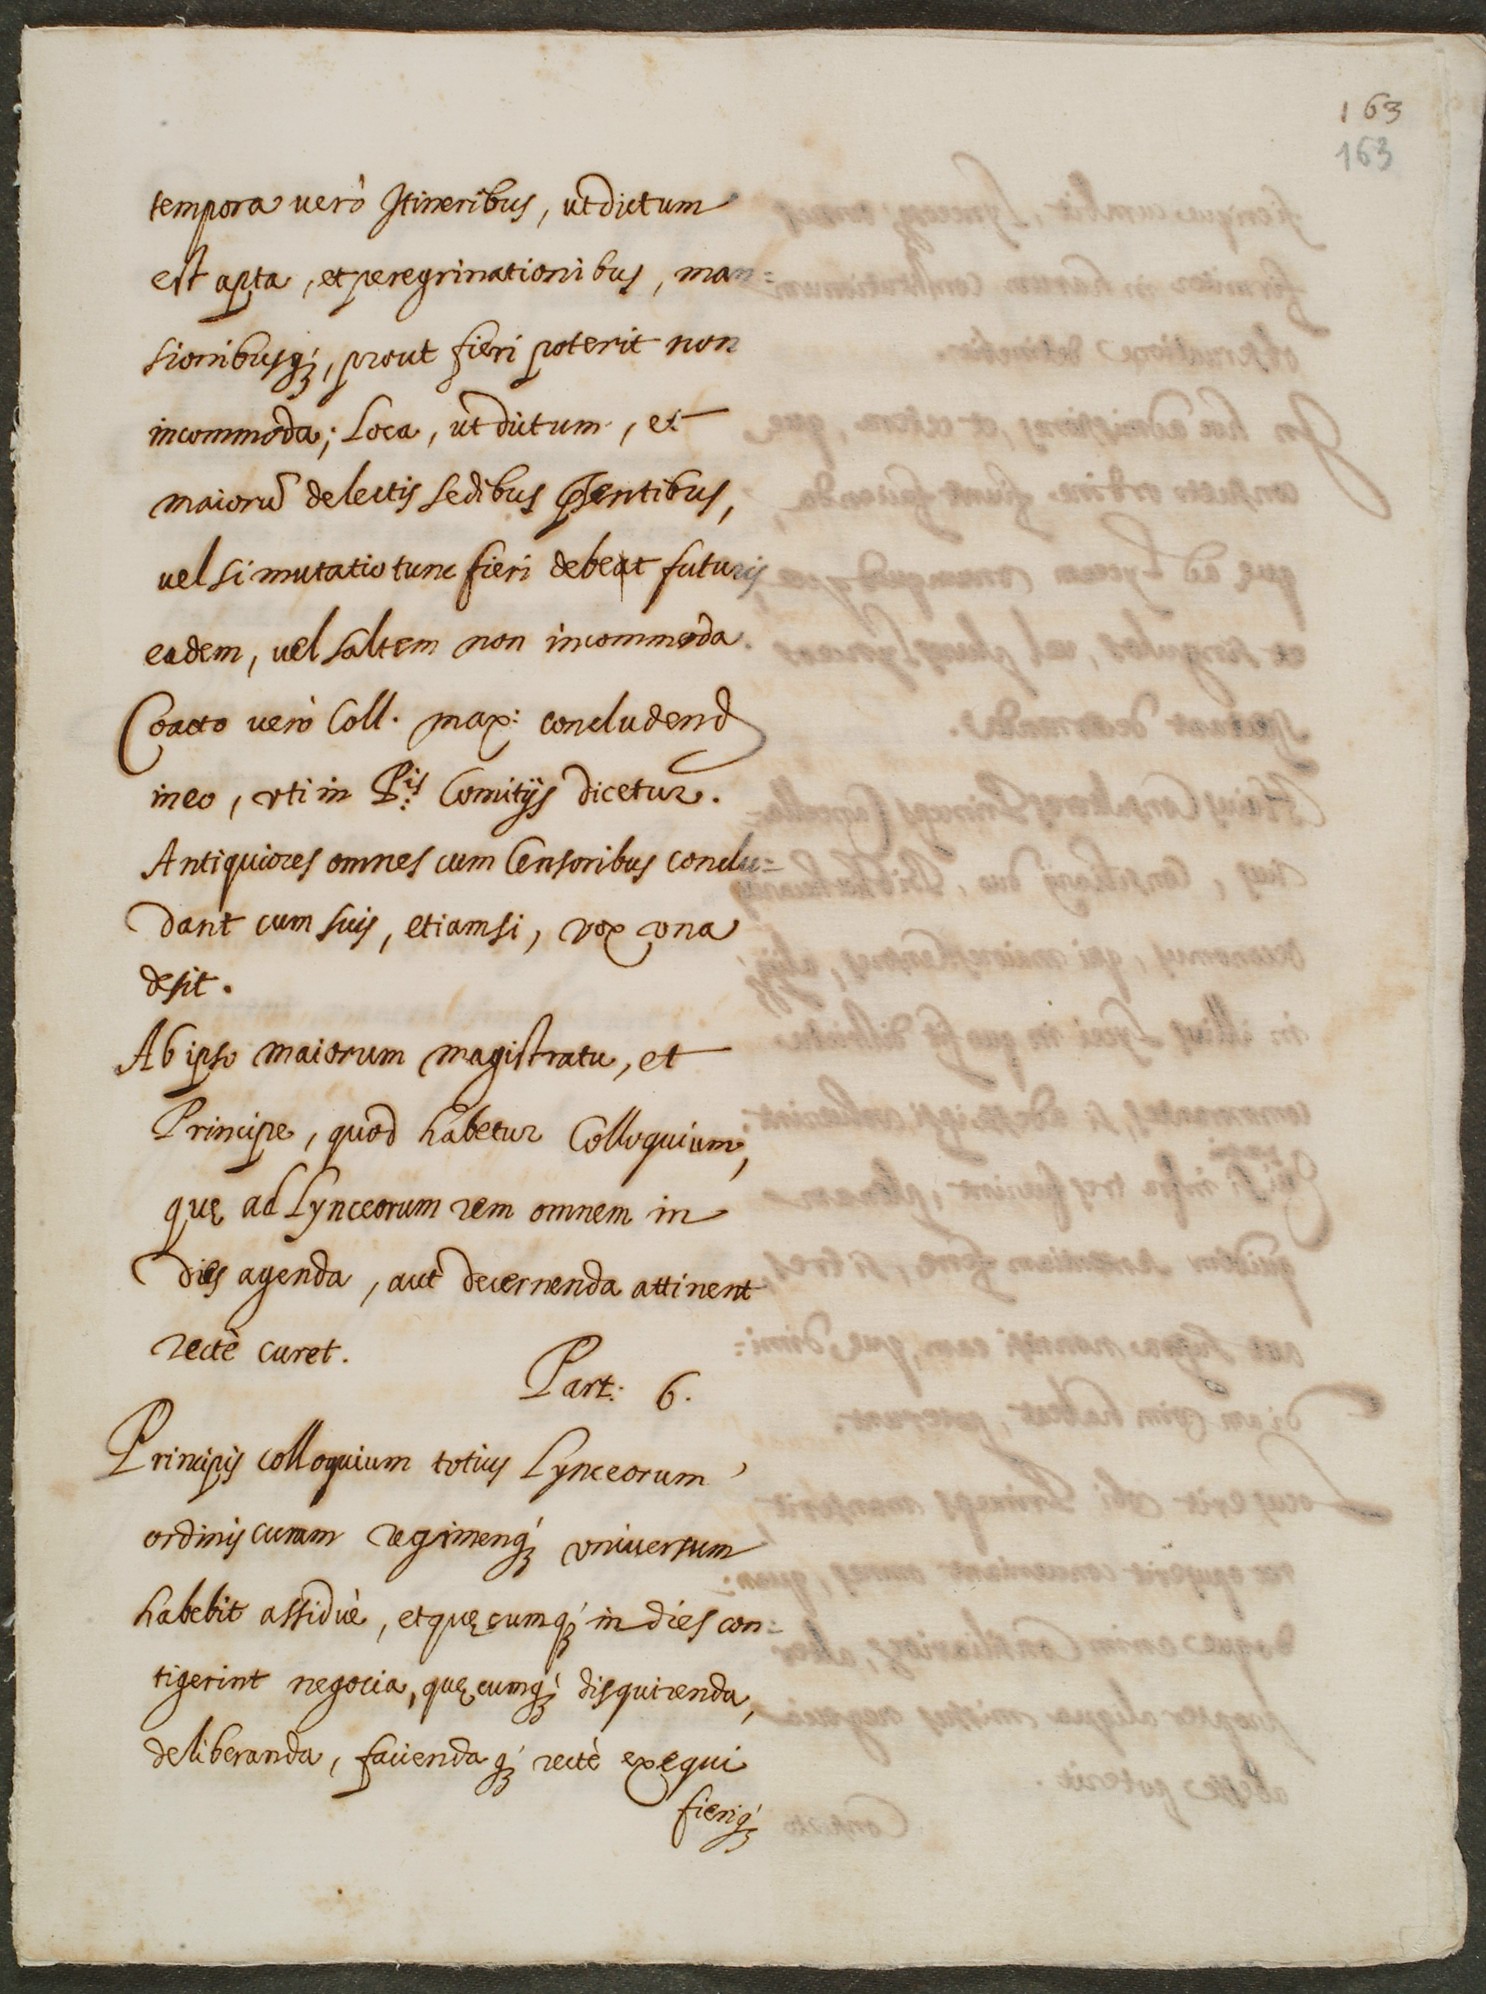 163
163
tempora verò Itineribus, ut dictum
est apta, et peregrinationibus, man=
sionibusq́;, prout fieri poterit non
incommoda; Loca, ut dictum, et
maiorũ delectis sedibus p̃sentibus,
uel si mutatio tunc fieri debeat futuris
eadem, uel saltem non incommoda.
Coacto uerò Coll. max: concludend
in eo, vti in P.is Comitijs dicetur.
Antiquiores omnes cum Censoribus conclu=
dant cum suis, etiamsi, vox vna
desit.
Ab ipso maiorum magistratu, et
Principe, quod habetur Colloquium,
quę ad Lynceorum rem omnem in
dies agenda, aut decernenda attinent
rectè curet.
Part: 6.
Principis colloquium totius Lynceorum
ordinis curam regimenq́; vniuersum
habebit assiduè, et quęcumq́; in dies con=
tigerint negocia, quęcumq́; disquirenda,
deliberanda, faciendaq́; rectè exequi
fieriq́;